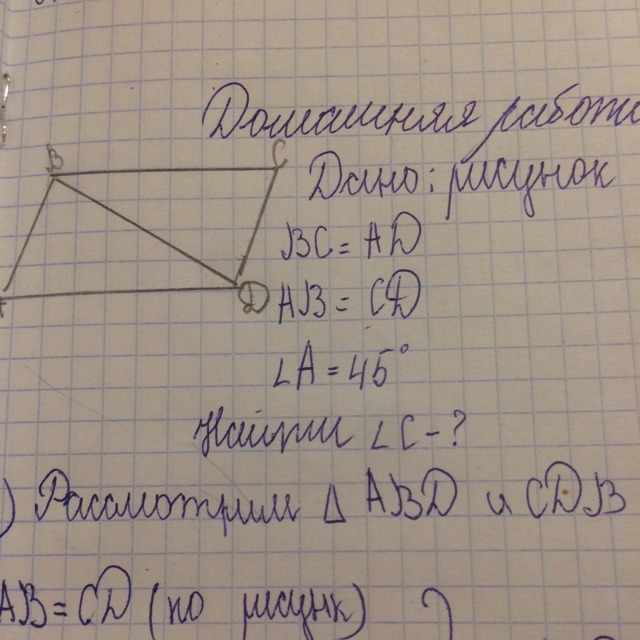 Домашняя работа
B C
Дано: рисунок
BC = AD
A D
AB = CD
∠A = 45°
Найти ∠C - ?
) Рассмотрим Δ ABD и CDB
AB = CD (по рисунк)